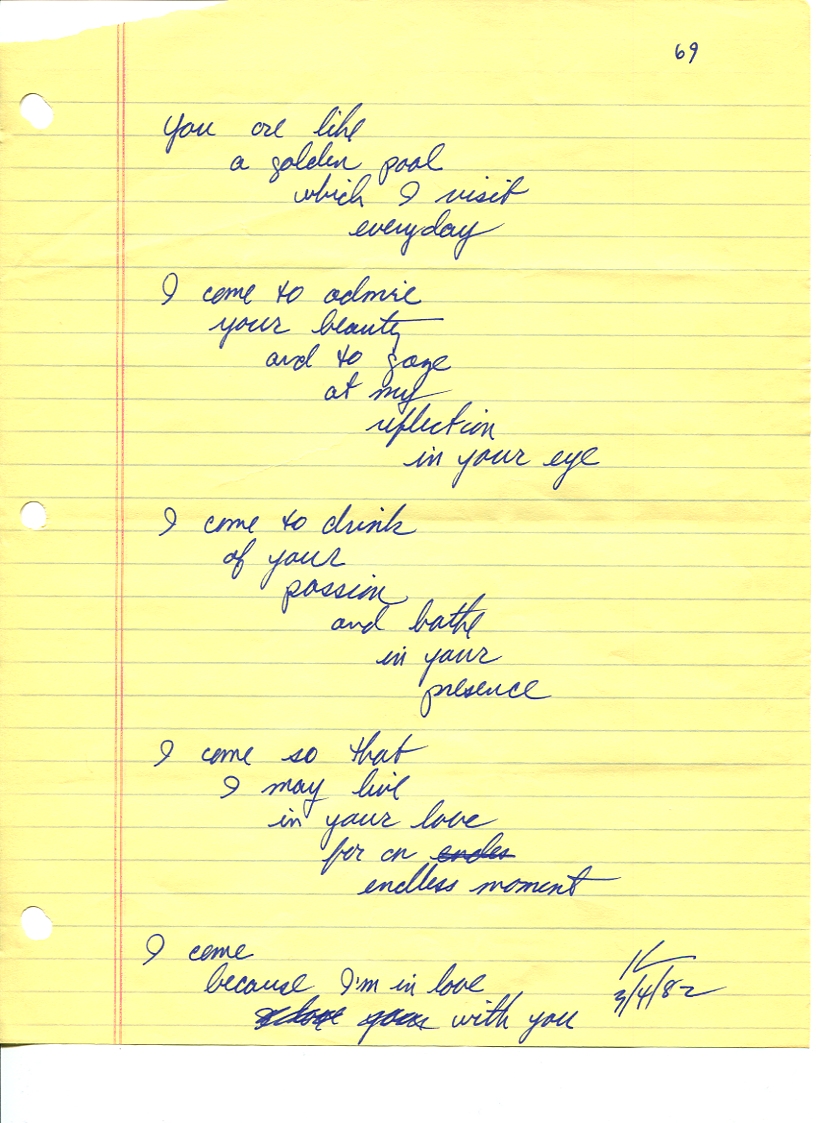 69
You are like
a golden pool
which I visit
everyday
I come to admire
your beauty
and to gaze
at my
reflection
in your eye
I come to drink
of your
passion
and bathe
in your
presence
I come so that
I may live
in your love
for an endles
endless moment
I come
because I'm in love
with you
3/4/82